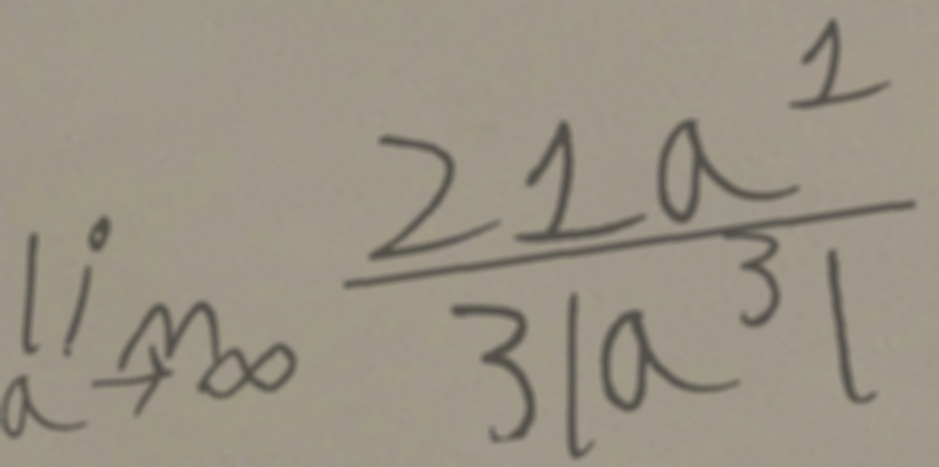 \lim_{a \to \infty} \frac{21a^1}{3|a^3|}